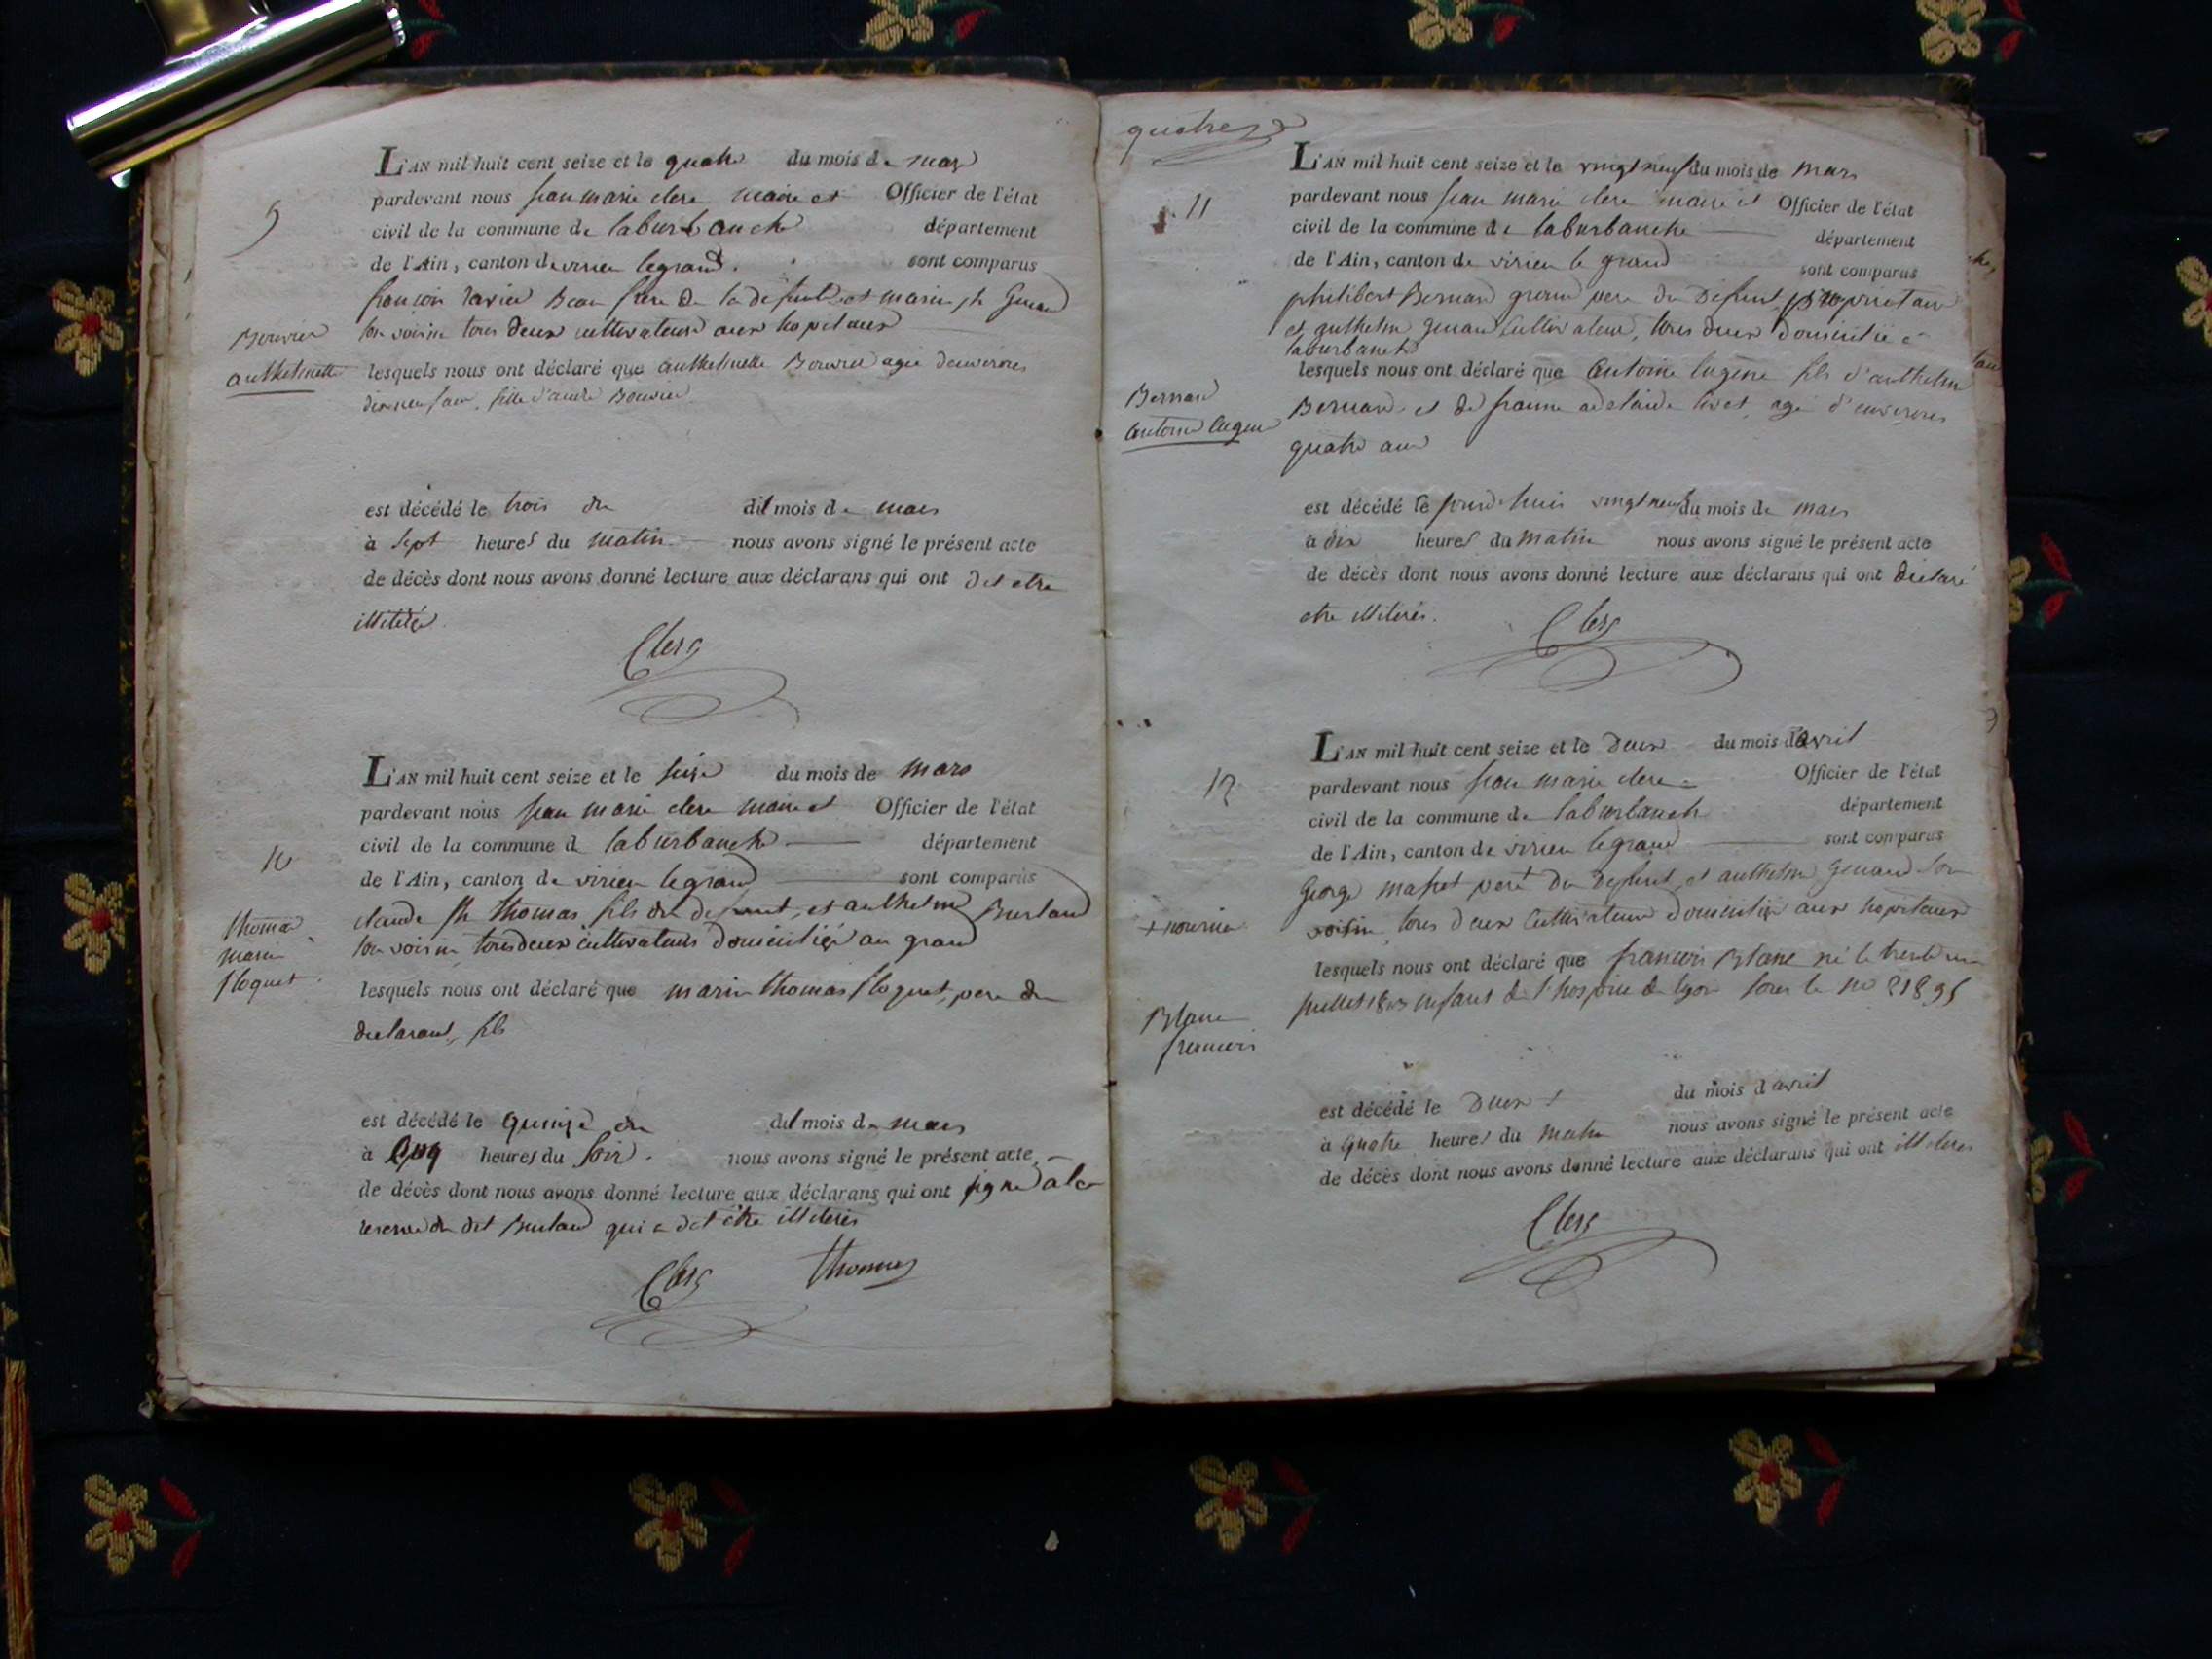 9
L'AN mil huit cent seize et le quatre du mois de mars
pardevant nous jean marie clerc maire et Officier de l'état
civil de la commune de laburbanche département
de l'Ain, canton de virieu legrand. sont comparus
françois ravier Beau frere de la defunte et marin jh Genaud
son voisin tous deux cultivateurs aux hopitaux
Bouvier
anthelmette
lesquels nous ont déclaré que anthelmette Bouvier agée denvirons
dixneuf ans, fille d'andré Bouvier
est décédé le trois du dit mois de mars
à sept heures du matin nous avons signé le présent acte
de décès dont nous avons donné lecture aux déclarans qui ont dit etre
illitérés
Clerc
10
L'AN mil huit cent seize et le seize du mois de mars
pardevant nous jean marie clerc maire et Officier de l'état
civil de la commune de laburbanche département
de l'Ain, canton de virieu legrand sont comparus
claude jh thomas fils du defunt, et anthelme Burland
son voisin tous deux cultivateurs domiciliés au grand
thomas
marin
floquet
lesquels nous ont déclaré que marin thomas floquet, pere du
declarant, fils
est décédé le quinze du dit mois de mars
à cinq heures du soir. nous avons signé le présent acte
de décès dont nous avons donné lecture aux déclarans qui ont signé à la
reserve du dit Burland qui a dit être illiterés
Clerc thomas
quatre
11
L'AN mil huit cent seize et le vingt neuf du mois de mars
pardevant nous jean marie clerc maire et Officier de l'état
civil de la commune de laburbanche département
de l'Ain, canton de virieu le grand sont comparus
philibert Bernard grand pere du Defunt, proprietaire
et anthelme genaud cultivateur, tous deux domicilié a
laburbanche
Bernard
antoine eugene
lesquels nous ont déclaré que antoine eugene fils d'anthelme
Bernard et de jeanne adelaide livet, agé d'environs
quatre ans
est décédé le jourd'huis vingt neuf du mois de mars
à dix heures du matin nous avons signé le présent acte
de décès dont nous avons donné lecture aux déclarans qui ont declaré
etre illiterés.
Clerc
12
L'AN mil huit cent seize et le deux du mois d'avril
pardevant nous jean marie clerc Officier de l'état
civil de la commune de laburbanche département
de l'Ain, canton de virieu legrand sont comparus
George pere du defunt, et anthelme Genaud son
voisin, tous deux cultivateurs domiciliés aux hopitaux
+ nourricier
lesquels nous ont déclaré que francois Blanc né le trente un
juillet enfant de l'hospice de lyon sous le no 21895
Blanc
francois
est décédé le deux du mois d avril
à quatre heures du matin nous avons signé le présent acte
de décès dont nous avons donné lecture aux déclarans qui ont illiteres
Clerc